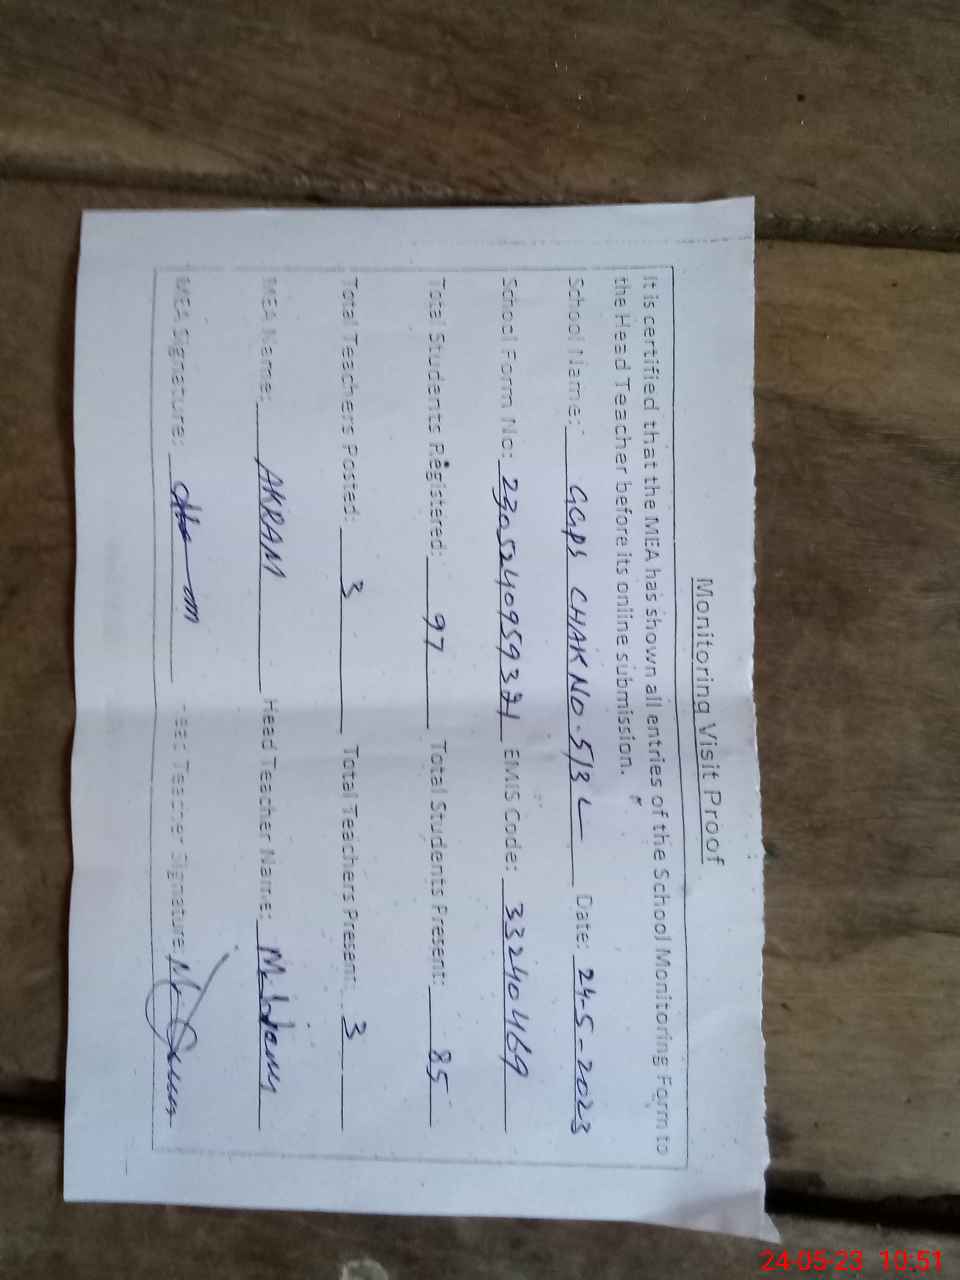 Monitoring Visit Proof
It is certified that the MEA has shown all entries of the School Monitoring Form to
the Head Teacher before its online submission.
School Name: GGPS CHAK NO. 5/3 L Date: 24-5-2023
School Form No: EMIS Code: 33240469
Total Students Registered: 97 Total Students Present: 85
Total Teachers Posted: 3 Total Teachers Present: 3
MEA Name: AKRAM Head Teacher Name:
MEA Signature: Head Teacher Signature:
24-05-23 10:51